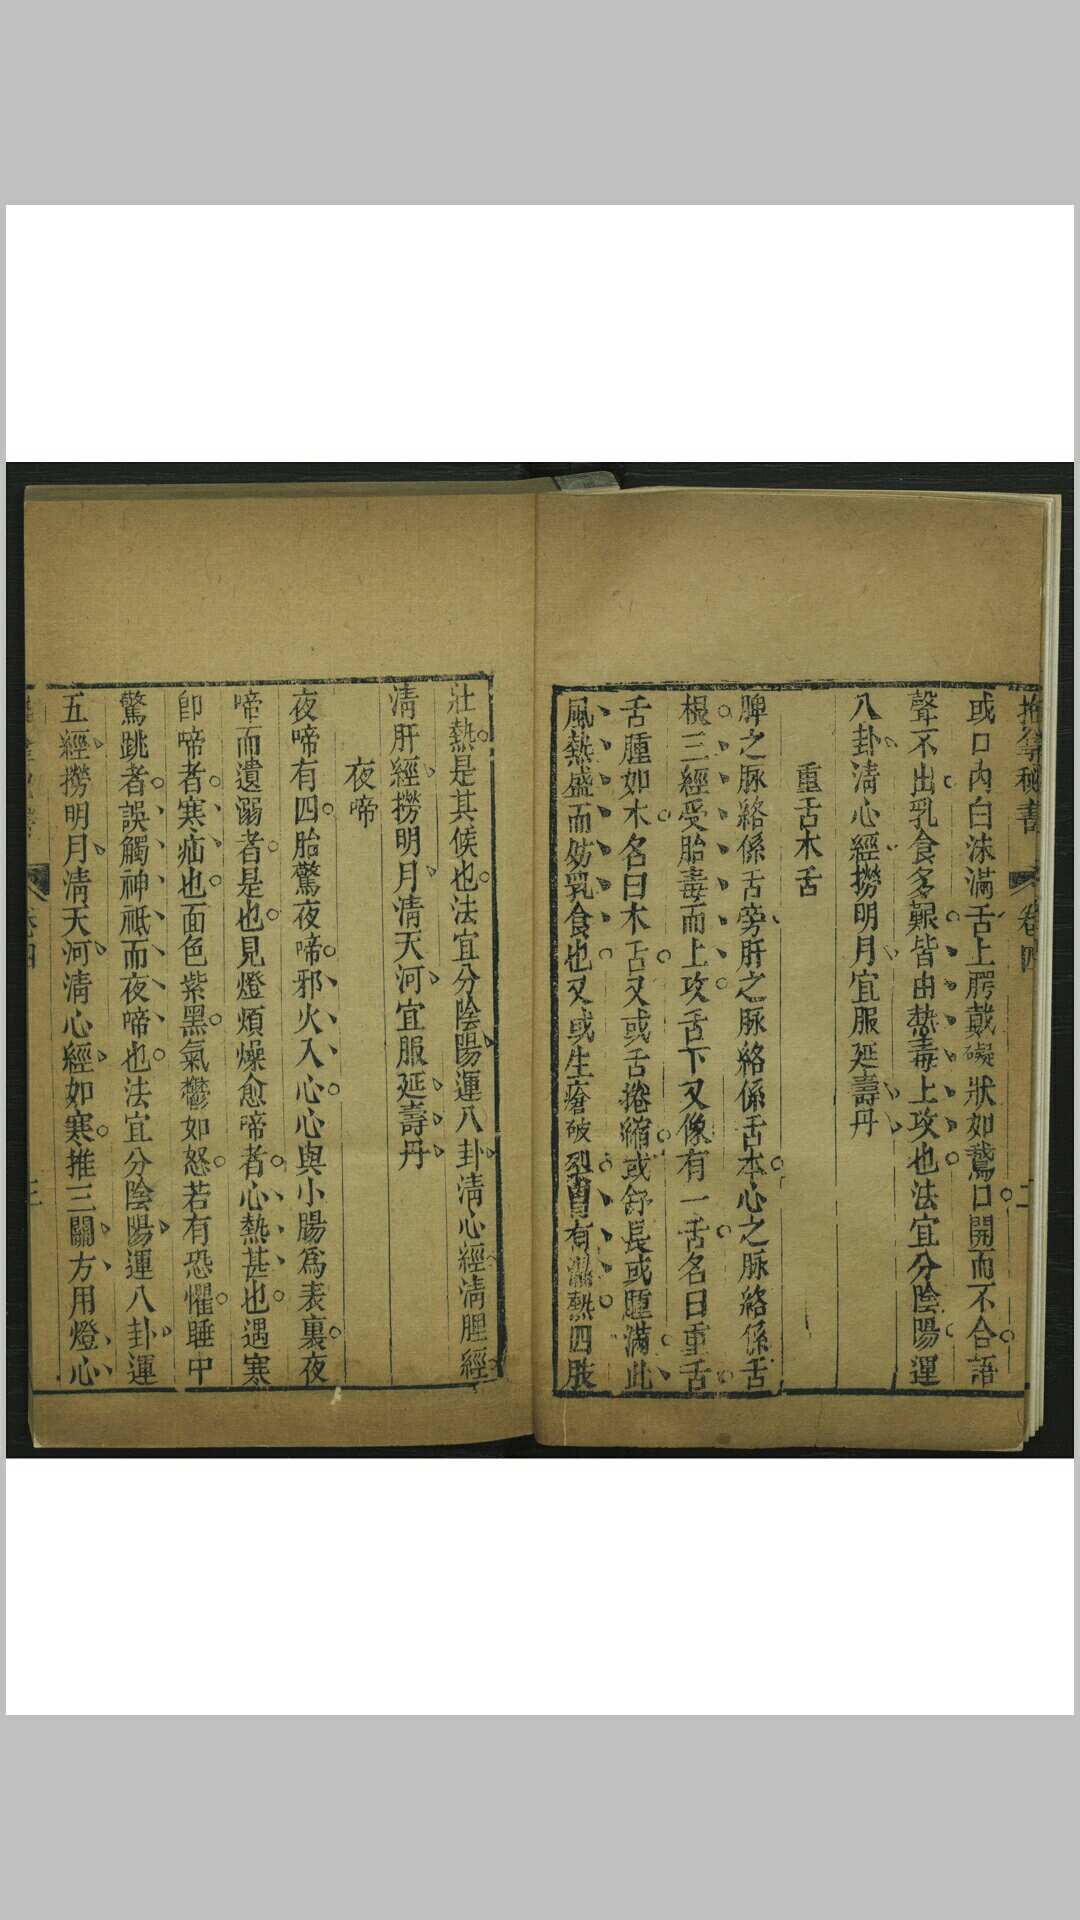 推拿秘書
卷四
二
或口內白沫滿舌上腭戴礙狀如鵞口開而不合語
聲不出乳食多艱皆由熱毒上攻也法宜分陰陽運
八卦清心經撈明月宜服延壽丹
重舌木舌
脾之脉絡係舌旁肝之脉絡係舌本心之脉絡係舌
根三經受胎毒而上攻舌下又像有一舌名曰重舌
舌腫如木名曰木舌又或舌捲縮或舒長或腫滿此
風熱盛而妨乳食也又或生瘡破裂胃有濕熱四肢
壯熱是其候也法宜分陰陽運八卦清心經清脾經
清肝經撈明月清天河宜服延壽丹
夜啼
夜啼有四胎驚夜啼邪火入心心與小腸爲表裏夜
啼而遺溺者是也見燈煩燥愈啼者心熱甚也遇寒
卽啼者寒疝也面色紫黑氣鬱如怒若有恐懼睡中
驚跳者誤觸神祗而夜啼也法宜分陰陽運八卦運
五經撈明月清天河清心經如寒推三關方用燈心
卷四
三